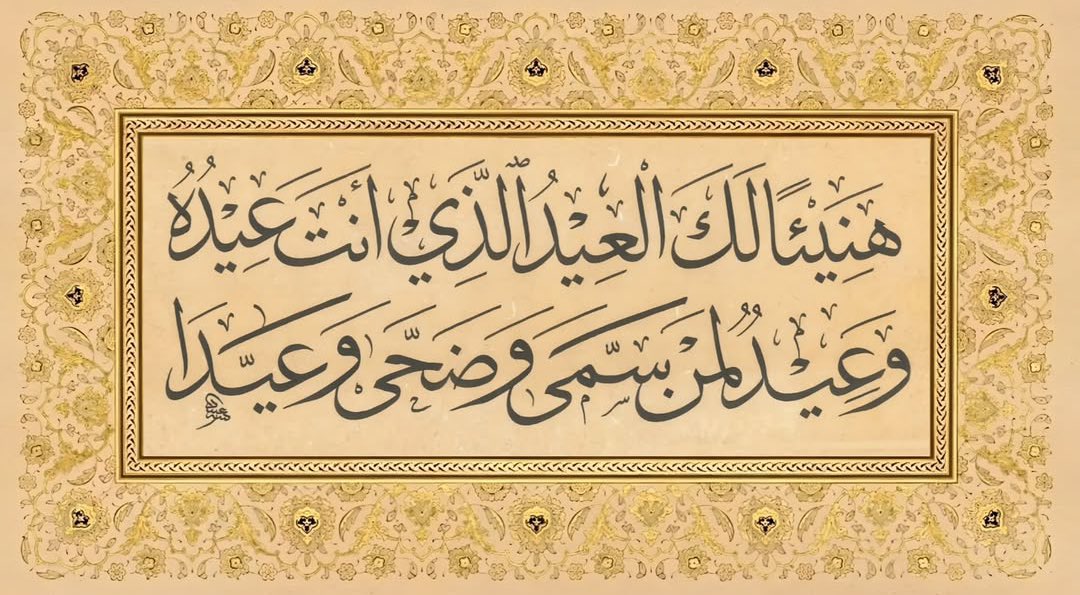 هَنِيْئًا لَكَ الْعِيْدُ الَّذِي أَنْتَ عِيْدُهُ
وَعِيْدٌ لِمَنْ سَمَّى وَضَحَّى وَعَيَّدَا